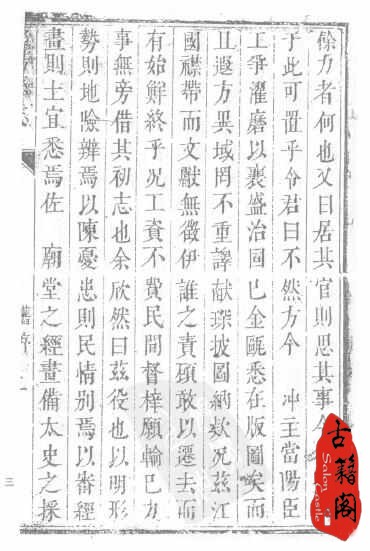 餘力者何也又曰居其官則思其事今
于此可置乎令君曰不然方今 冲王當陽臣
工爭濯磨以襄盛治固已金甌悉在版圖矣而
且遐方異域罔不重譯献琛披圖納欵况茲江
國襟帶而文獻無徵伊誰之責頋敢以遷去而
有始鮮終乎况工資不費民間督梓願輸已力
事無旁借其初志也余欣然曰茲役也以明形
勢則地險辨焉以陳憂患則民情别焉以審經
畫則土宜悉焉佐 廟堂之經畫備太史之採
舊序
三
古籍阁
Salon Castle